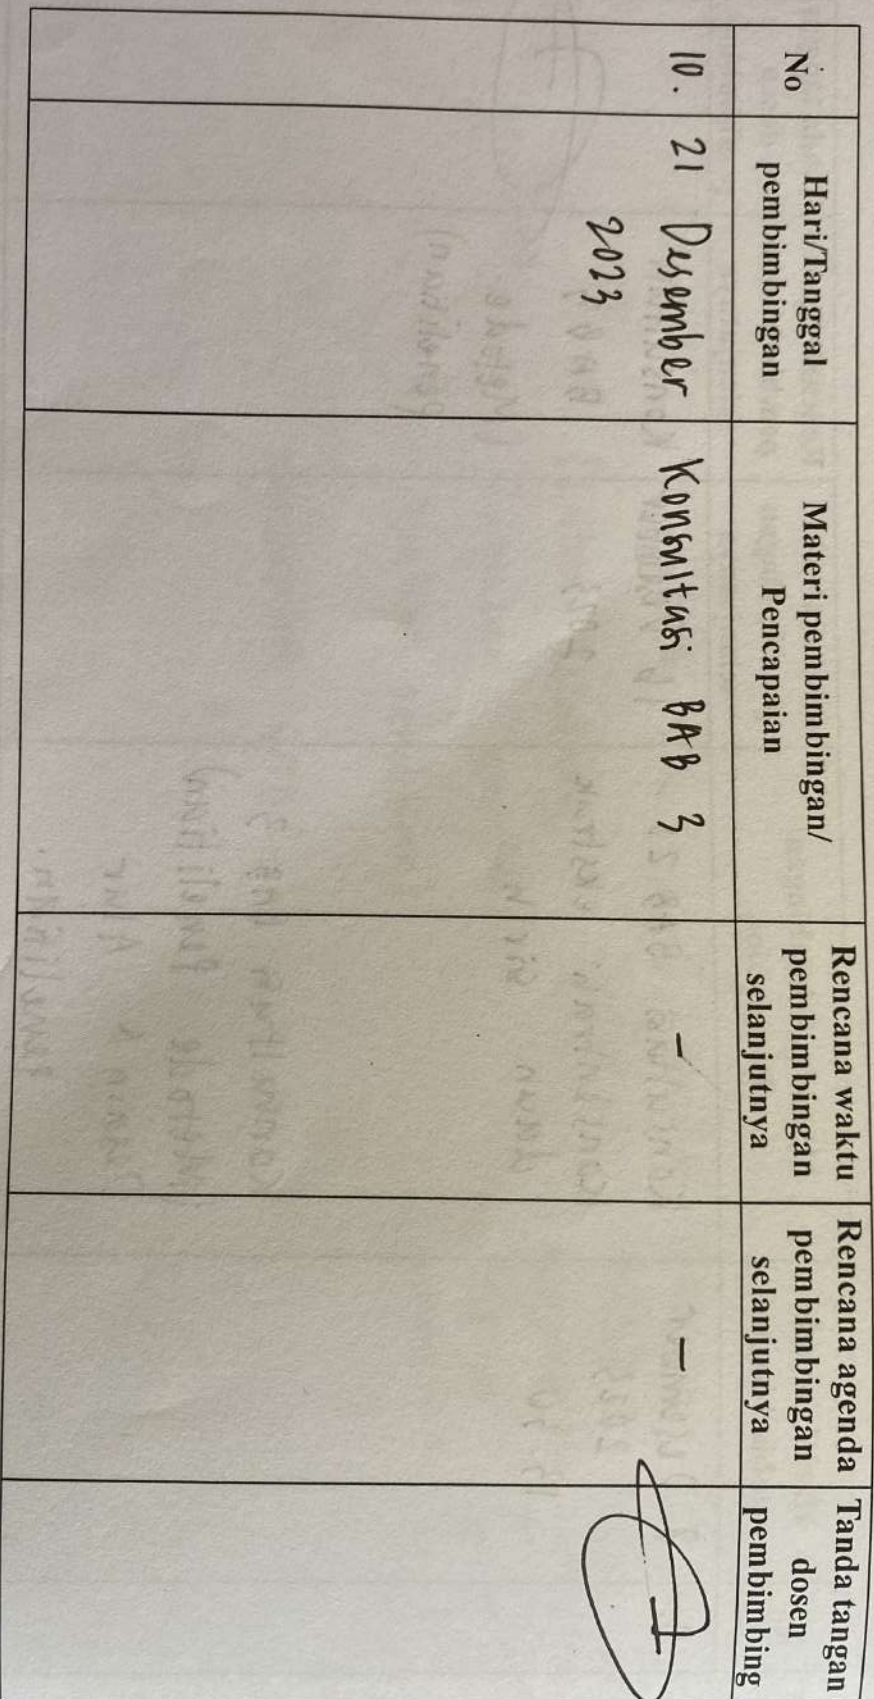 No
Hari/Tanggal
pembimbingan
Materi pembimbingan/
Pencapaian
Rencana waktu
pembimbingan
selanjutnya
Rencana agenda
pembimbingan
selanjutnya
Tanda tangan
dosen
pembimbing
10.
21 Desember
2023
Konsultasi BAB 3
-
-